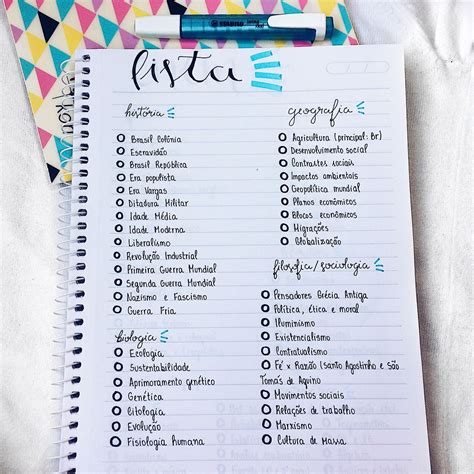 STABILO
lista
história
Brasil Colônia
Escravidão
Brasil República
Era populista
Era Vargas
Ditadura Militar
Idade Média
Idade Moderna
Liberalismo
Revolução Industrial
Primeira Guerra Mundial
Segunda Guerra Mundial
Nazismo e Fascismo
Guerra Fria
biologia
Ecologia
Sustentabilidade
Aprimoramento genético
Genética
Citologia
Evolução
Fisiologia Humana
geografia
Agricultura (principal: Br)
Desenvolvimento social
Contrastes sociais
Impactos ambientais
Geopolítica mundial
Planos econômicos
Blocos econômicos
Migrações
Globalização
filosofia/sociologia
Pensadores Grécia Antiga
Política, ética e moral
Iluminismo
Existencialismo
Contratualismo
Fé x Razão (santo Agostinho e São
Tomás de Aquino
Movimentos sociais
Relações de trabalho
Marxismo
Cultura de Massa